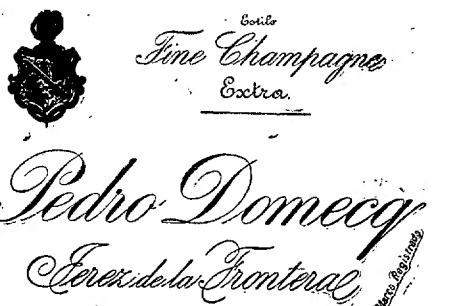 Estilo
Fine Champagne
Extra.
Pedro Domecq
Jerez de la Frontera
Marca Registrada